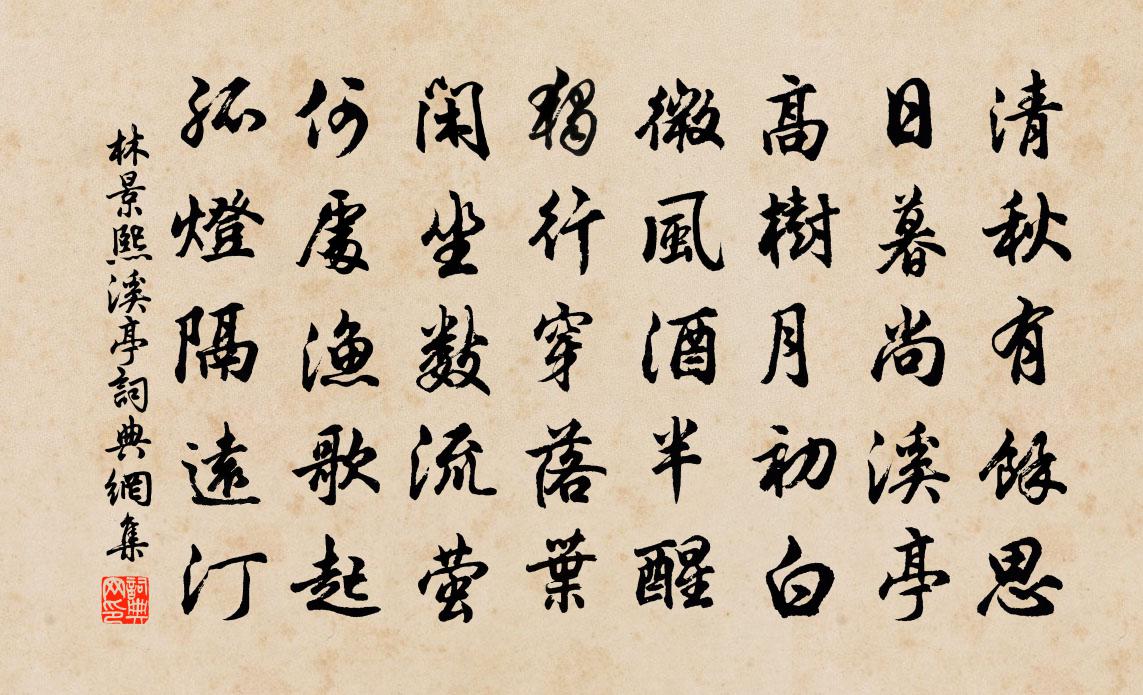 清秋有餘思
日暮尚溪亭
高樹月初白
微風酒半醒
獨行穿落葉
閑坐數流螢
何處漁歌起
孤燈隔遠汀
林景熙溪亭詞典網集
詞典网印